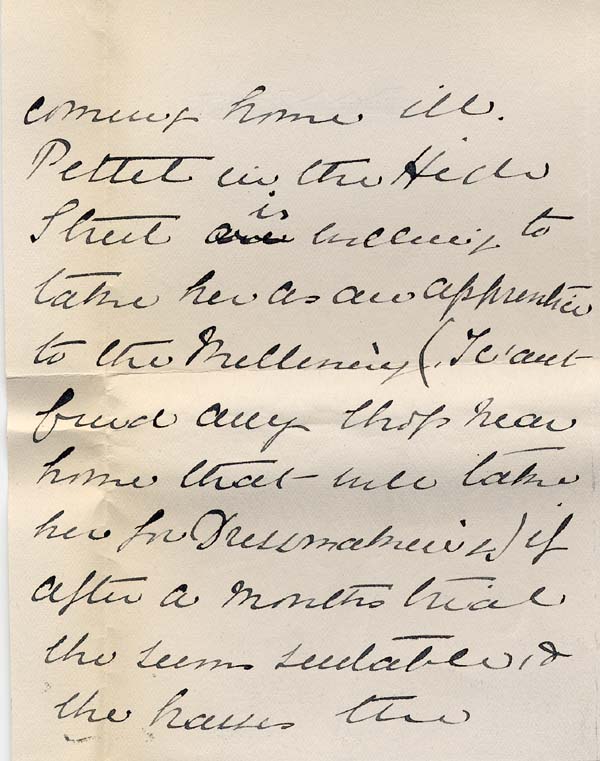 coming home ill.
Pettet in the High
Street is willing to
take her as an apprentice
to the Millinery (I can't
find any shop near
home that will take
her for Dressmaking) if
after a months trial
she seems suitable, &
she passes the